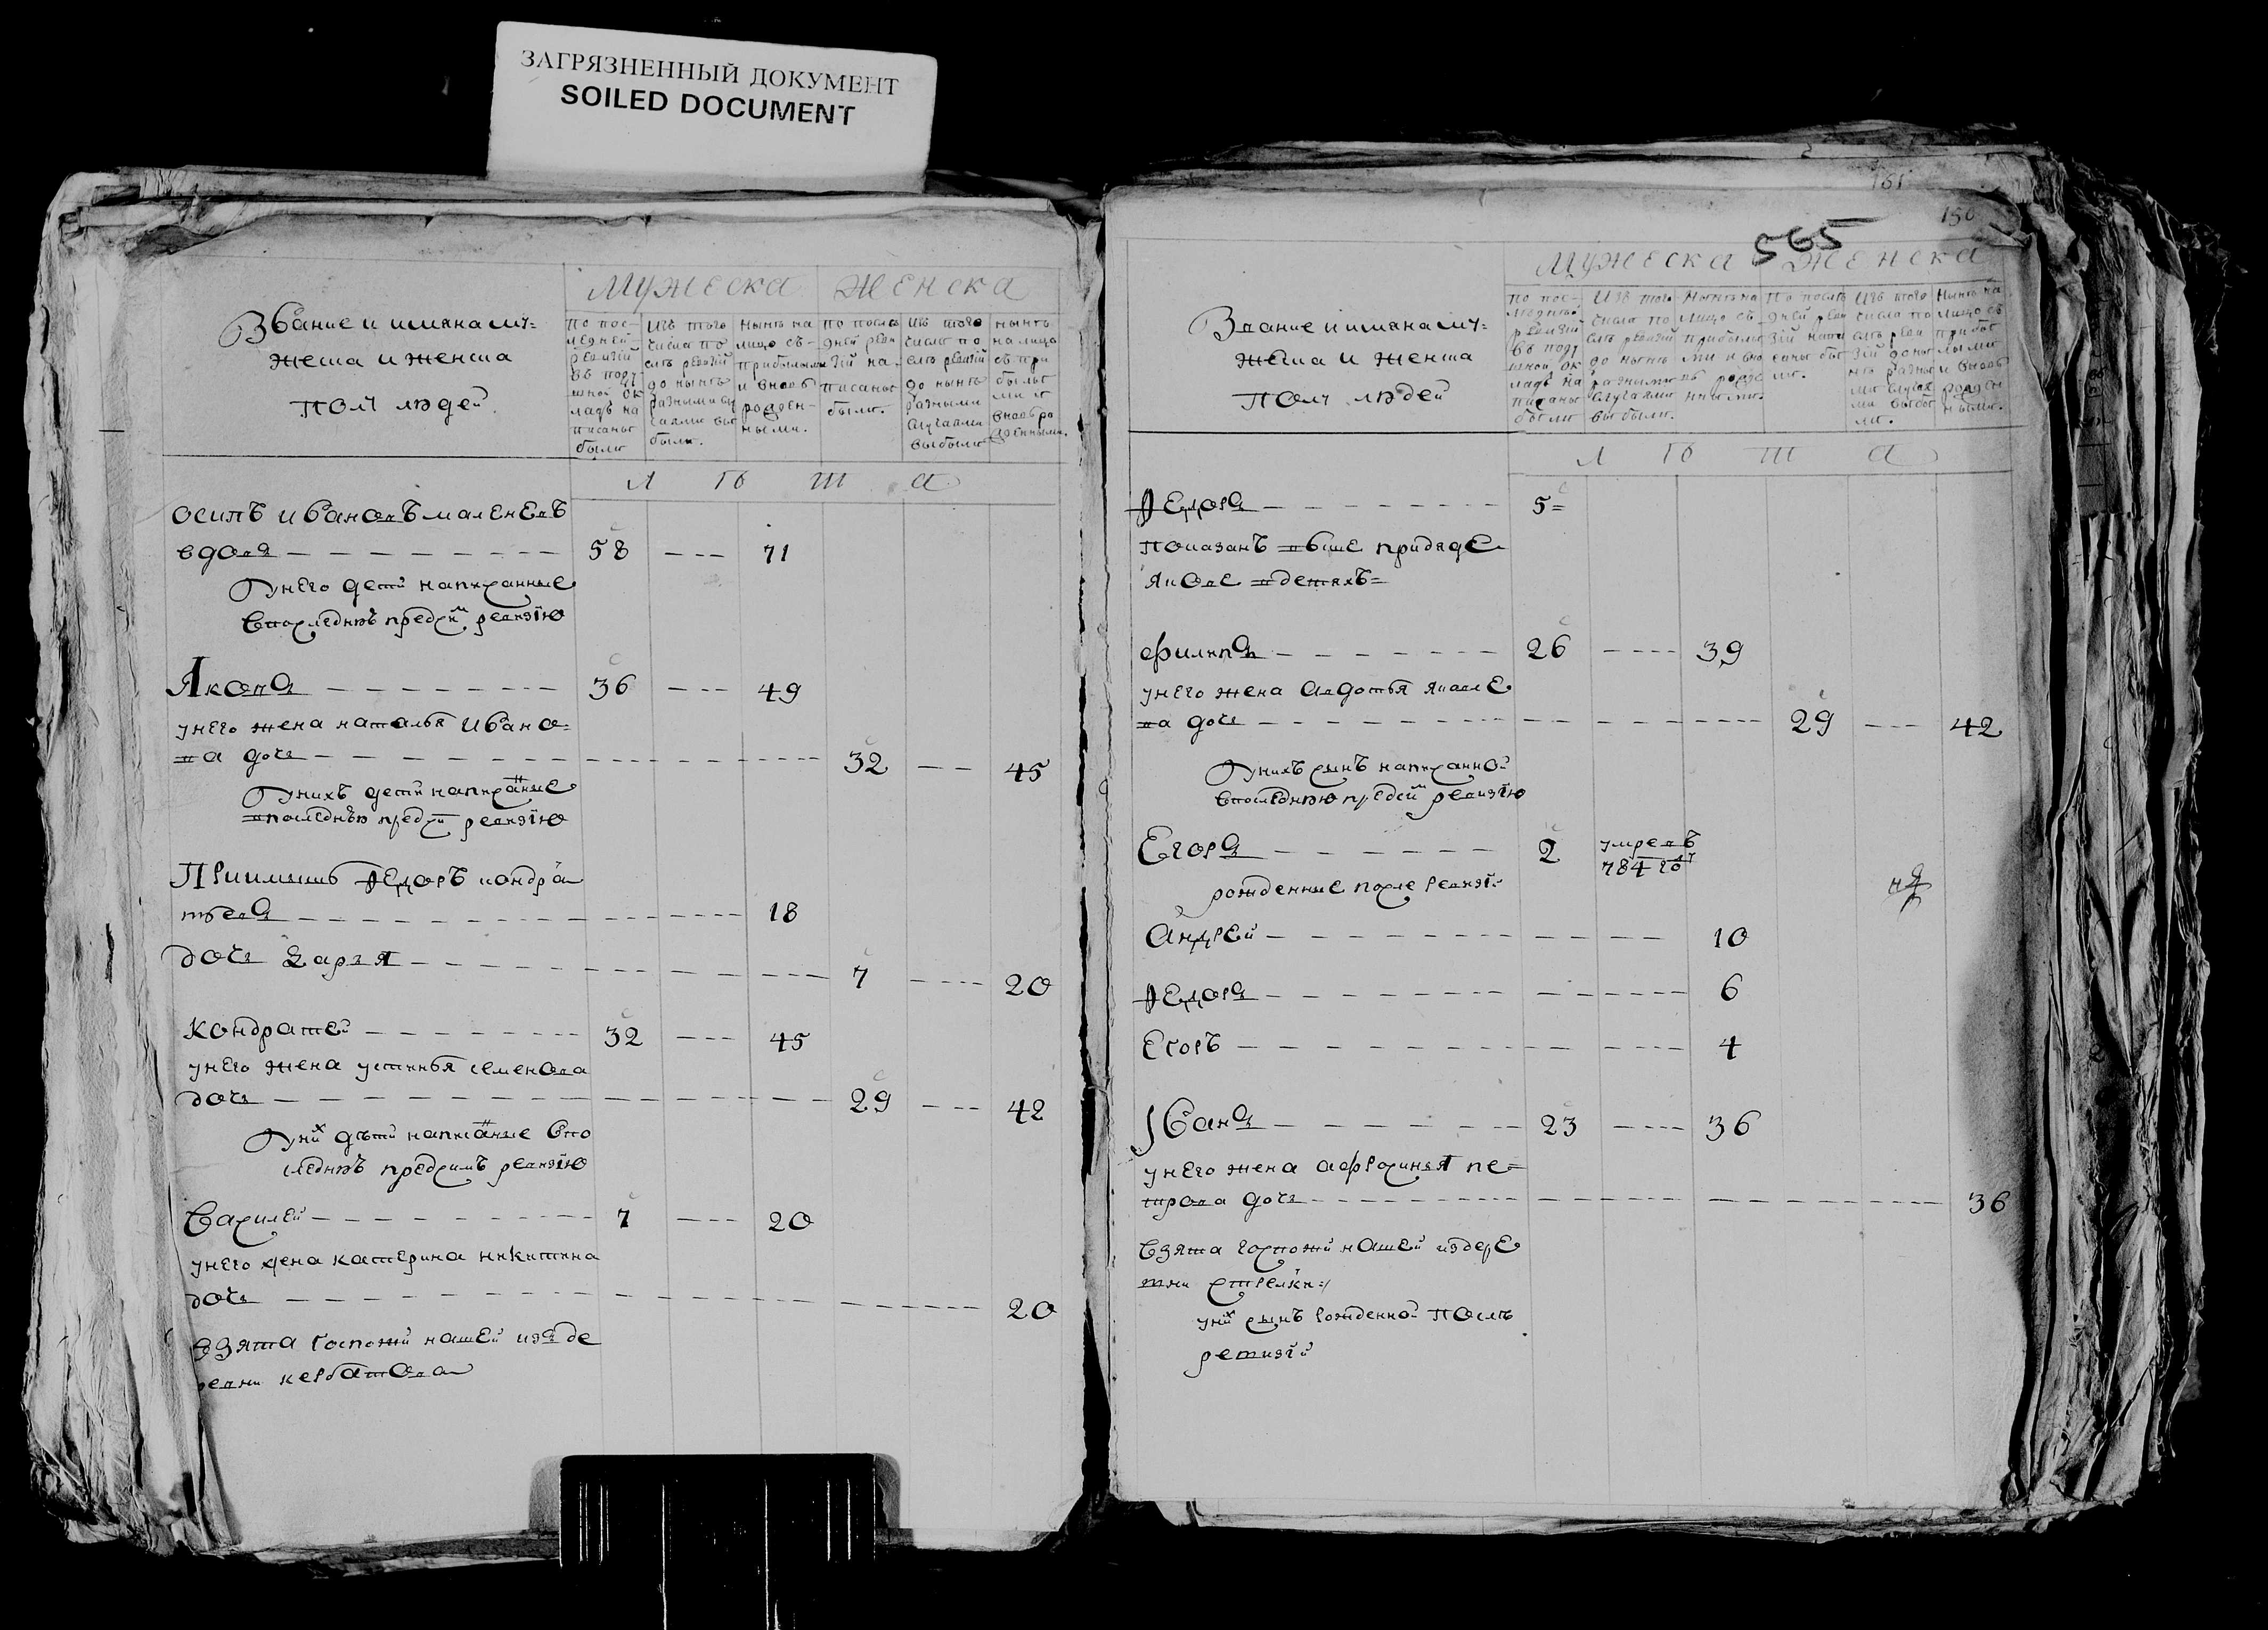 ЗАГРЯЗНЕННЫЙ ДОКУМЕНТ
SOILED DOCUMENT
Мужеска Женска
Звание и имяна му-
жеска и женска
полу людей
По пос-
ледней
ревизiи
въ поду
шной ок
ладъ на
писаны
были
Изъ того
числа по
слѣ ревизiи
до нынѣ
разными слу
чаями вы
были.
Нынѣ на
лицо съ-
прибылыми
и вновь
рожден-
ными.
По послѣ
дней реви
зiи на-
писаны
были.
Изъ того
числа по
слѣ ревизiи
до нынѣ
разными
случаями
выбыли
Нынѣ
на лицо
съ при
былы
ми и
вновь ро
жденными.
лѣта
осипъ ивановъ
вдовъ 58 71
у него дети написанные
в последнюю пред сим ревизiю
Яковъ 36 49
у него жена наталья Ивано=
ва дочь 32 45
у нихъ дети написанные
в последнюю пред сим ревизiю
Приимышъ Федоръ кондра
тьевъ 18
дочь 7 20
Кондратей 32 45
у него жена устинья семенова
дочь 29 42
у них дѣти написаные в по
следнюю пред симъ ревизiю
Василей 7 20
у него жена катерина никитина
дочь 20
взята госпожи нашей из де
ревни
161
150
565
Мужеска Женска
Звание и имяна му-
жеска и женска
полу людей
По пос-
ледней
ревизiи
въ поду
шной ок
ладъ на
писаны
были
Изъ того
числа по
слѣ ревизiи
до нынѣ
разными
случаями
выбыли.
Нынѣ на
лицо съ-
прибылы
ми и вно
вь рожде
нными.
По послѣ
дней реви
зiи напи
саны бы
ли.
Изъ того
числа по
слѣ реви
зiи до ны
нѣ разны
ми случая
ми выбы
ли.
Нынѣ на
лицо съ
прибы
лыми
и вновь
рожден
ными.
лѣта
Федоръ 5=
показанъ выше при дяде
якове в детяхъ=
филипъ 26 39
у него жена авдотья яковле
ва дочь 29 42
у нихъ сынъ написанной
в последнюю пред сим ревизiю
Егоръ 2 умре въ
784 год
рожденные после ревизiи
Андрей 10
Федоръ 6
Егоръ 4
Иванъ 23 36
у него жена афросинья пе=
трова дочь 36
взята госпожи нашей из дере
вни стрелки
у них сынъ рожденной послѣ
ревизiи